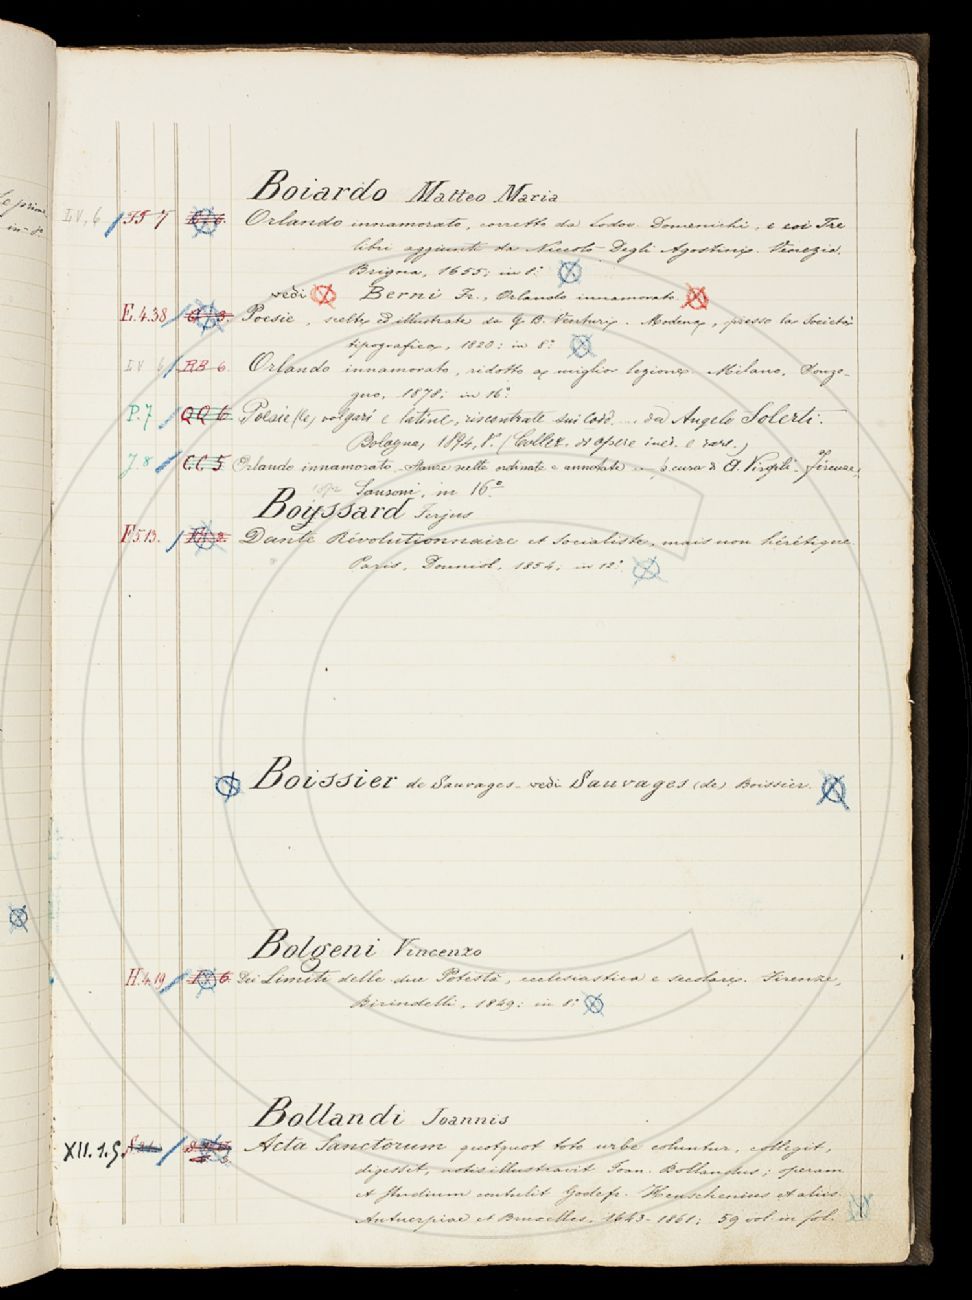 Boiardo Matteo Maria
LV, 6 55 7 Orlando innamorato, corretto da Lodov. Domenichi, e coi Tre
libri aggiunti da Niccolò Degli Agostini. Venezia.
Brigna, 1655; in 8°.
vedi Berni Fr., Orlando innamorato.
E.4.38 Poesie, scelte ed illustrate da G. B. Venturi. Modena, presso la Società
tipografica, 1820; in 8°.
LV 6 BB 6 Orlando innamorato, ridotto a miglior lezione. Milano, Sonzo-
gno, 1878; in 16°.
P.7 QQ 6 Poesie (le) volgari e latine, riscontrate sui Codd. ... da Angelo Solerti.
Bologna, 1894, 8°. (Collez. di opere ined. e rare.)
J.8 CC 5 Orlando innamorato, stanze scelte ordinate e annotate ... p. cura di A. Virgili. Firenze,
1892 Sansoni, in 16°
Boyssard Ferjus
F513. Dante Révolutionnaire et Socialiste, mais non hérétique
Paris, Douniol, 1854; in 12°.
Boissier de Sauvages - vedi Sauvages (de) Boissier.
Bolgeni Vincenzo
H.4.19 6. Dei Limiti delle due Potestà, ecclesiastica e secolare. Firenze,
Birindelli, 1849; in 8°.
Bollandi Joannis
XII.1.5 Acta Sanctorum quotquot toto urbe coluntur, collegit,
digessit, notis illustravit Joan. Bollandus; operam
et studium contulit Godefr. Henschenius et alios.
Antuerpiae et Bruxelles, 1643-1861; 59 vol. in fol.